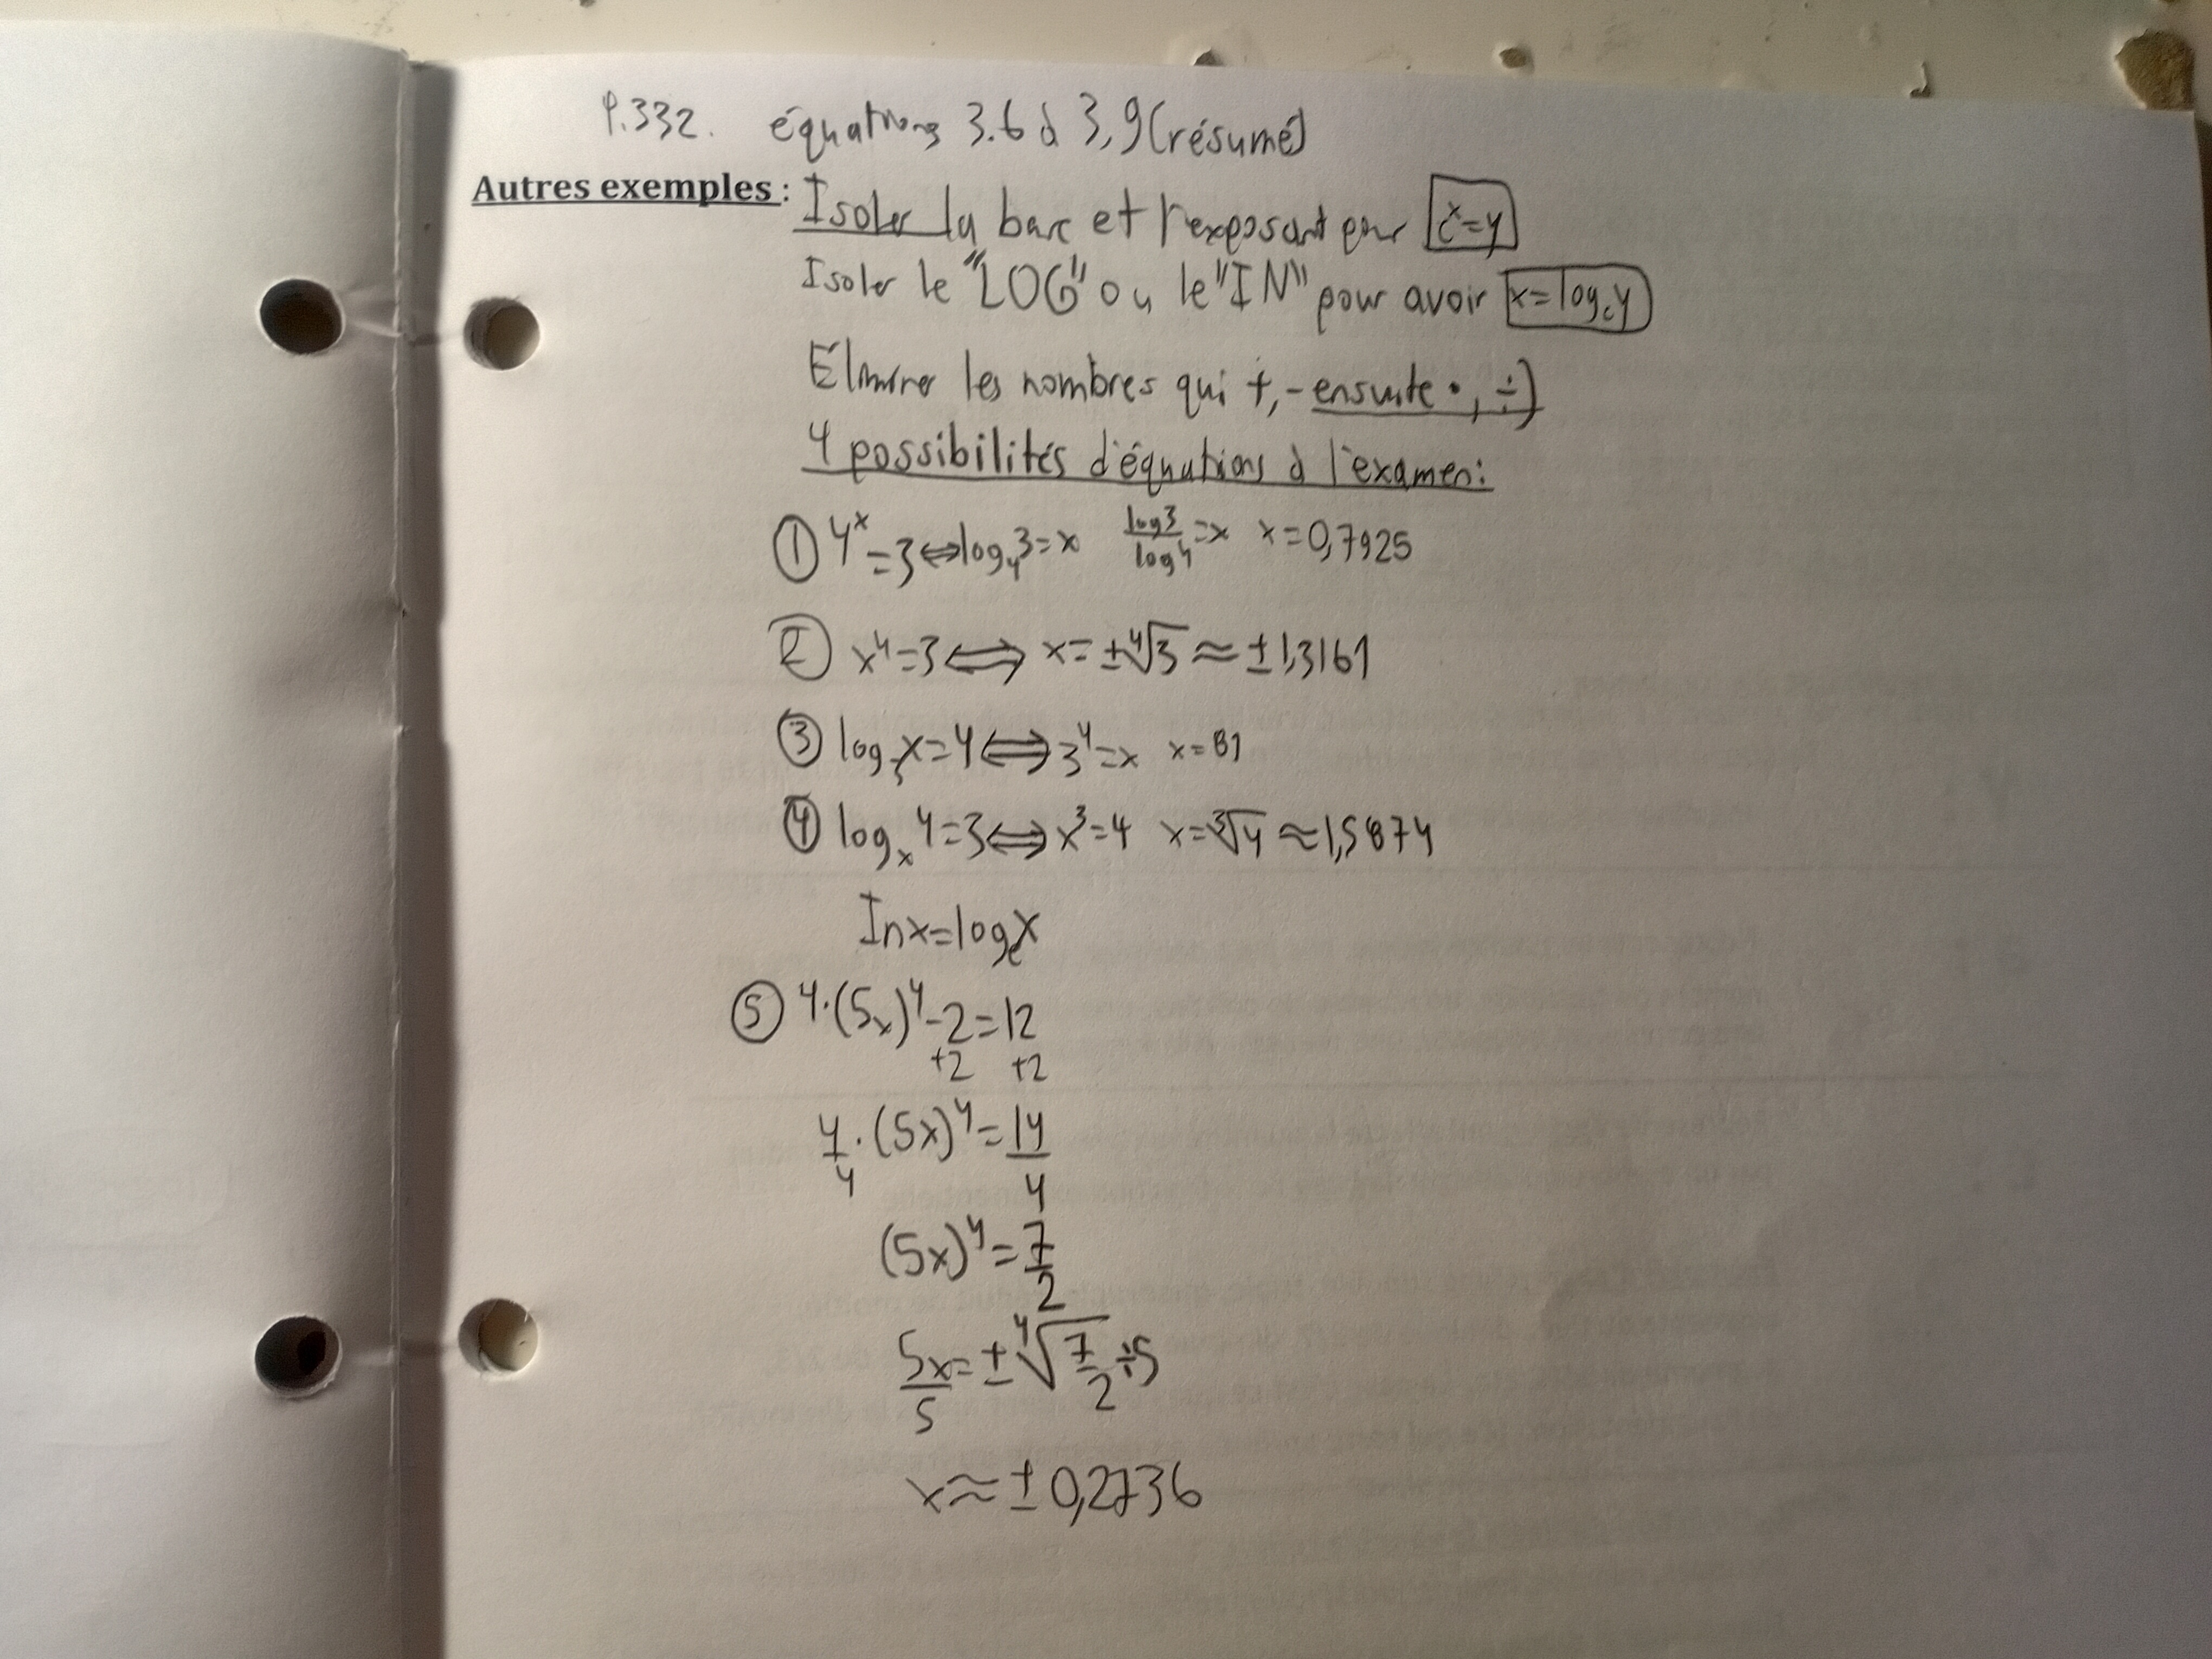 P.332. équations 3.6 à 3,9 (résumé)
Autres exemples : Isoler la base et l'exposant pour c^x=y
Isoler le "LOG" ou le "IN" pour avoir x=log_c y
Éliminer les nombres qui +,- ensuite •, ÷)
4 possibilités d'équations à l'examen:
① 4^x=3⇔log_4 3=x log3/log4=x x=0,7925
② x^4=3⇔ x=±∜3 ≈ ±1,3161
③ log_3 x=4⇔3^4=x x=81
④ log_x 4=3⇔x^3=4 x=∛4 ≈1,5874
Inx=log_e x
⑤ 4·(5x)^4-2=12
+2 +2
4/4·(5x)^4=14/4
(5x)^4=7/2
5x/5=±∜(7/2)÷5
x≈±0,2736